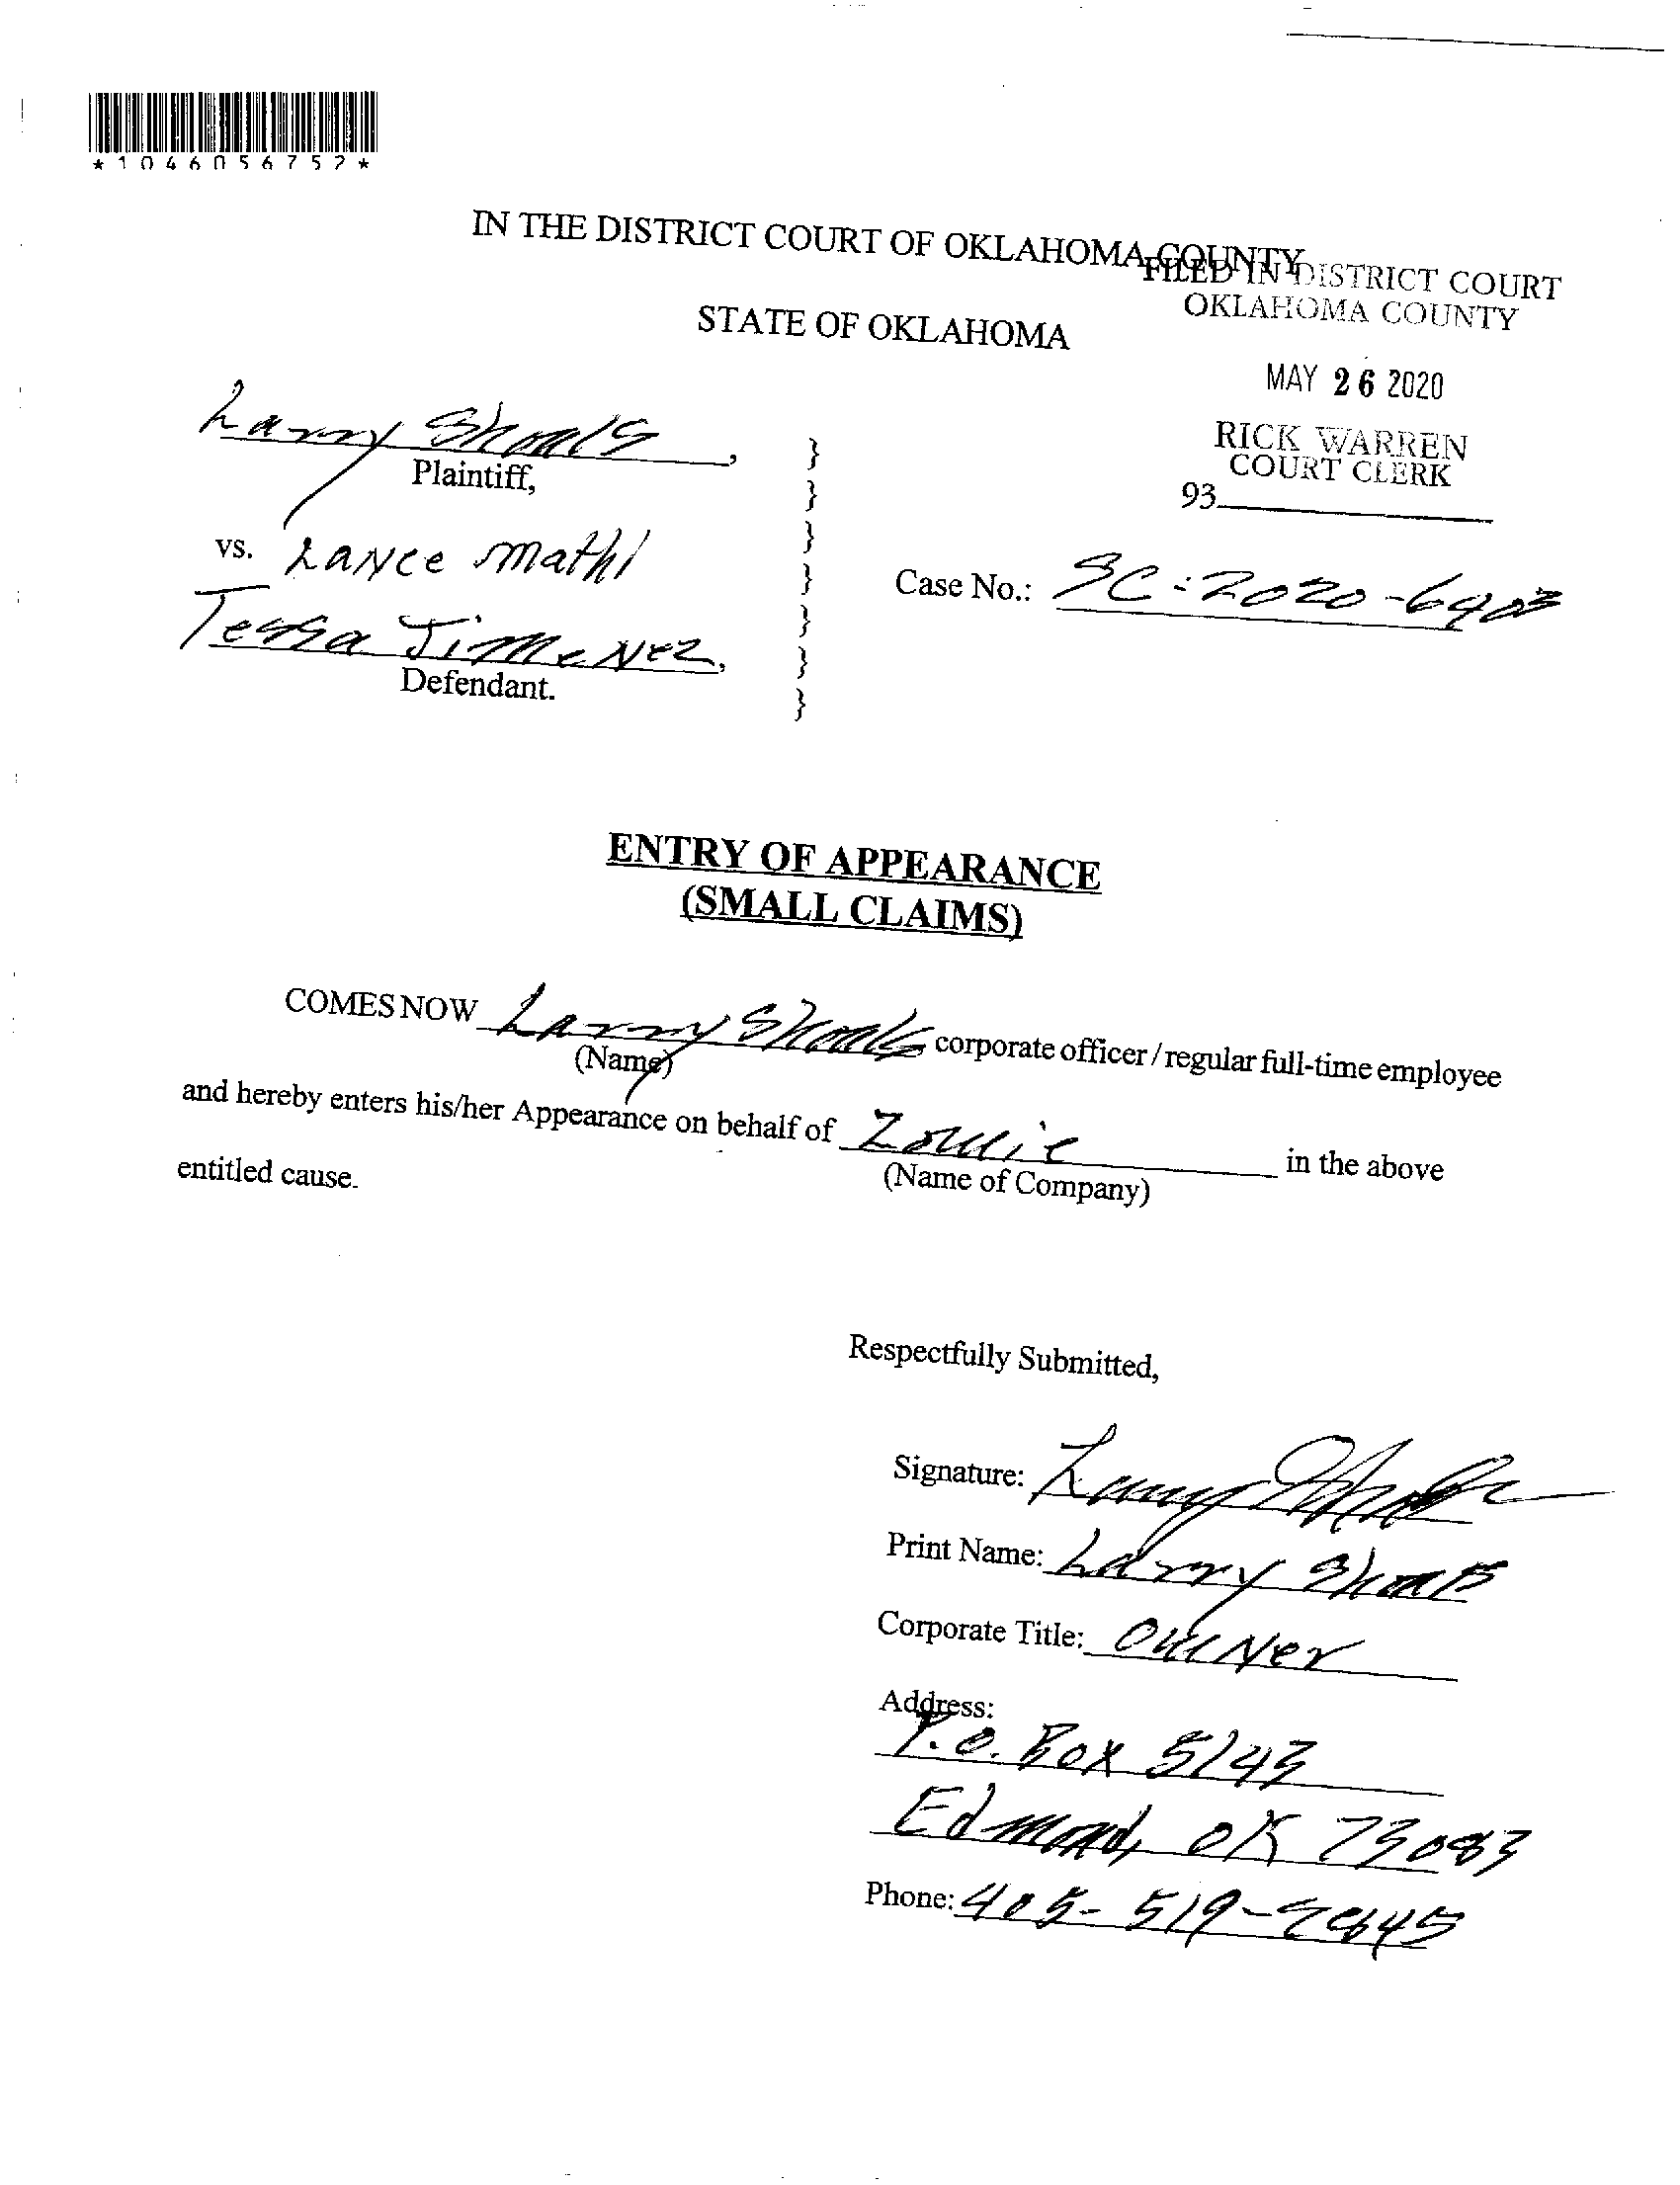 *1046056752*
IN THE DISTRICT COURT OF OKLAHOMA COUNTY
FILED IN DISTRICT COURT
OKLAHOMA COUNTY
STATE OF OKLAHOMA
MAY 26 2020
RICK WARREN
COURT CLERK
93
Larry Shoals,
Plaintiff,
vs. Lance
Tessa Jimenez,
Defendant.
}
}
}
}
}
}
}
Case No.: SC-2020-6403
ENTRY OF APPEARANCE
(SMALL CLAIMS)
COMES NOW Larry Shoals corporate officer / regular full-time employee
(Name)
and hereby enters his/her Appearance on behalf of in the above
(Name of Company)
entitled cause.
Respectfully Submitted,
Signature: Larry Shoals
Print Name: Larry Shoals
Corporate Title: Owner
Address:
P.O. Box 5143
Edmond, OK 73083
Phone: 405-519-